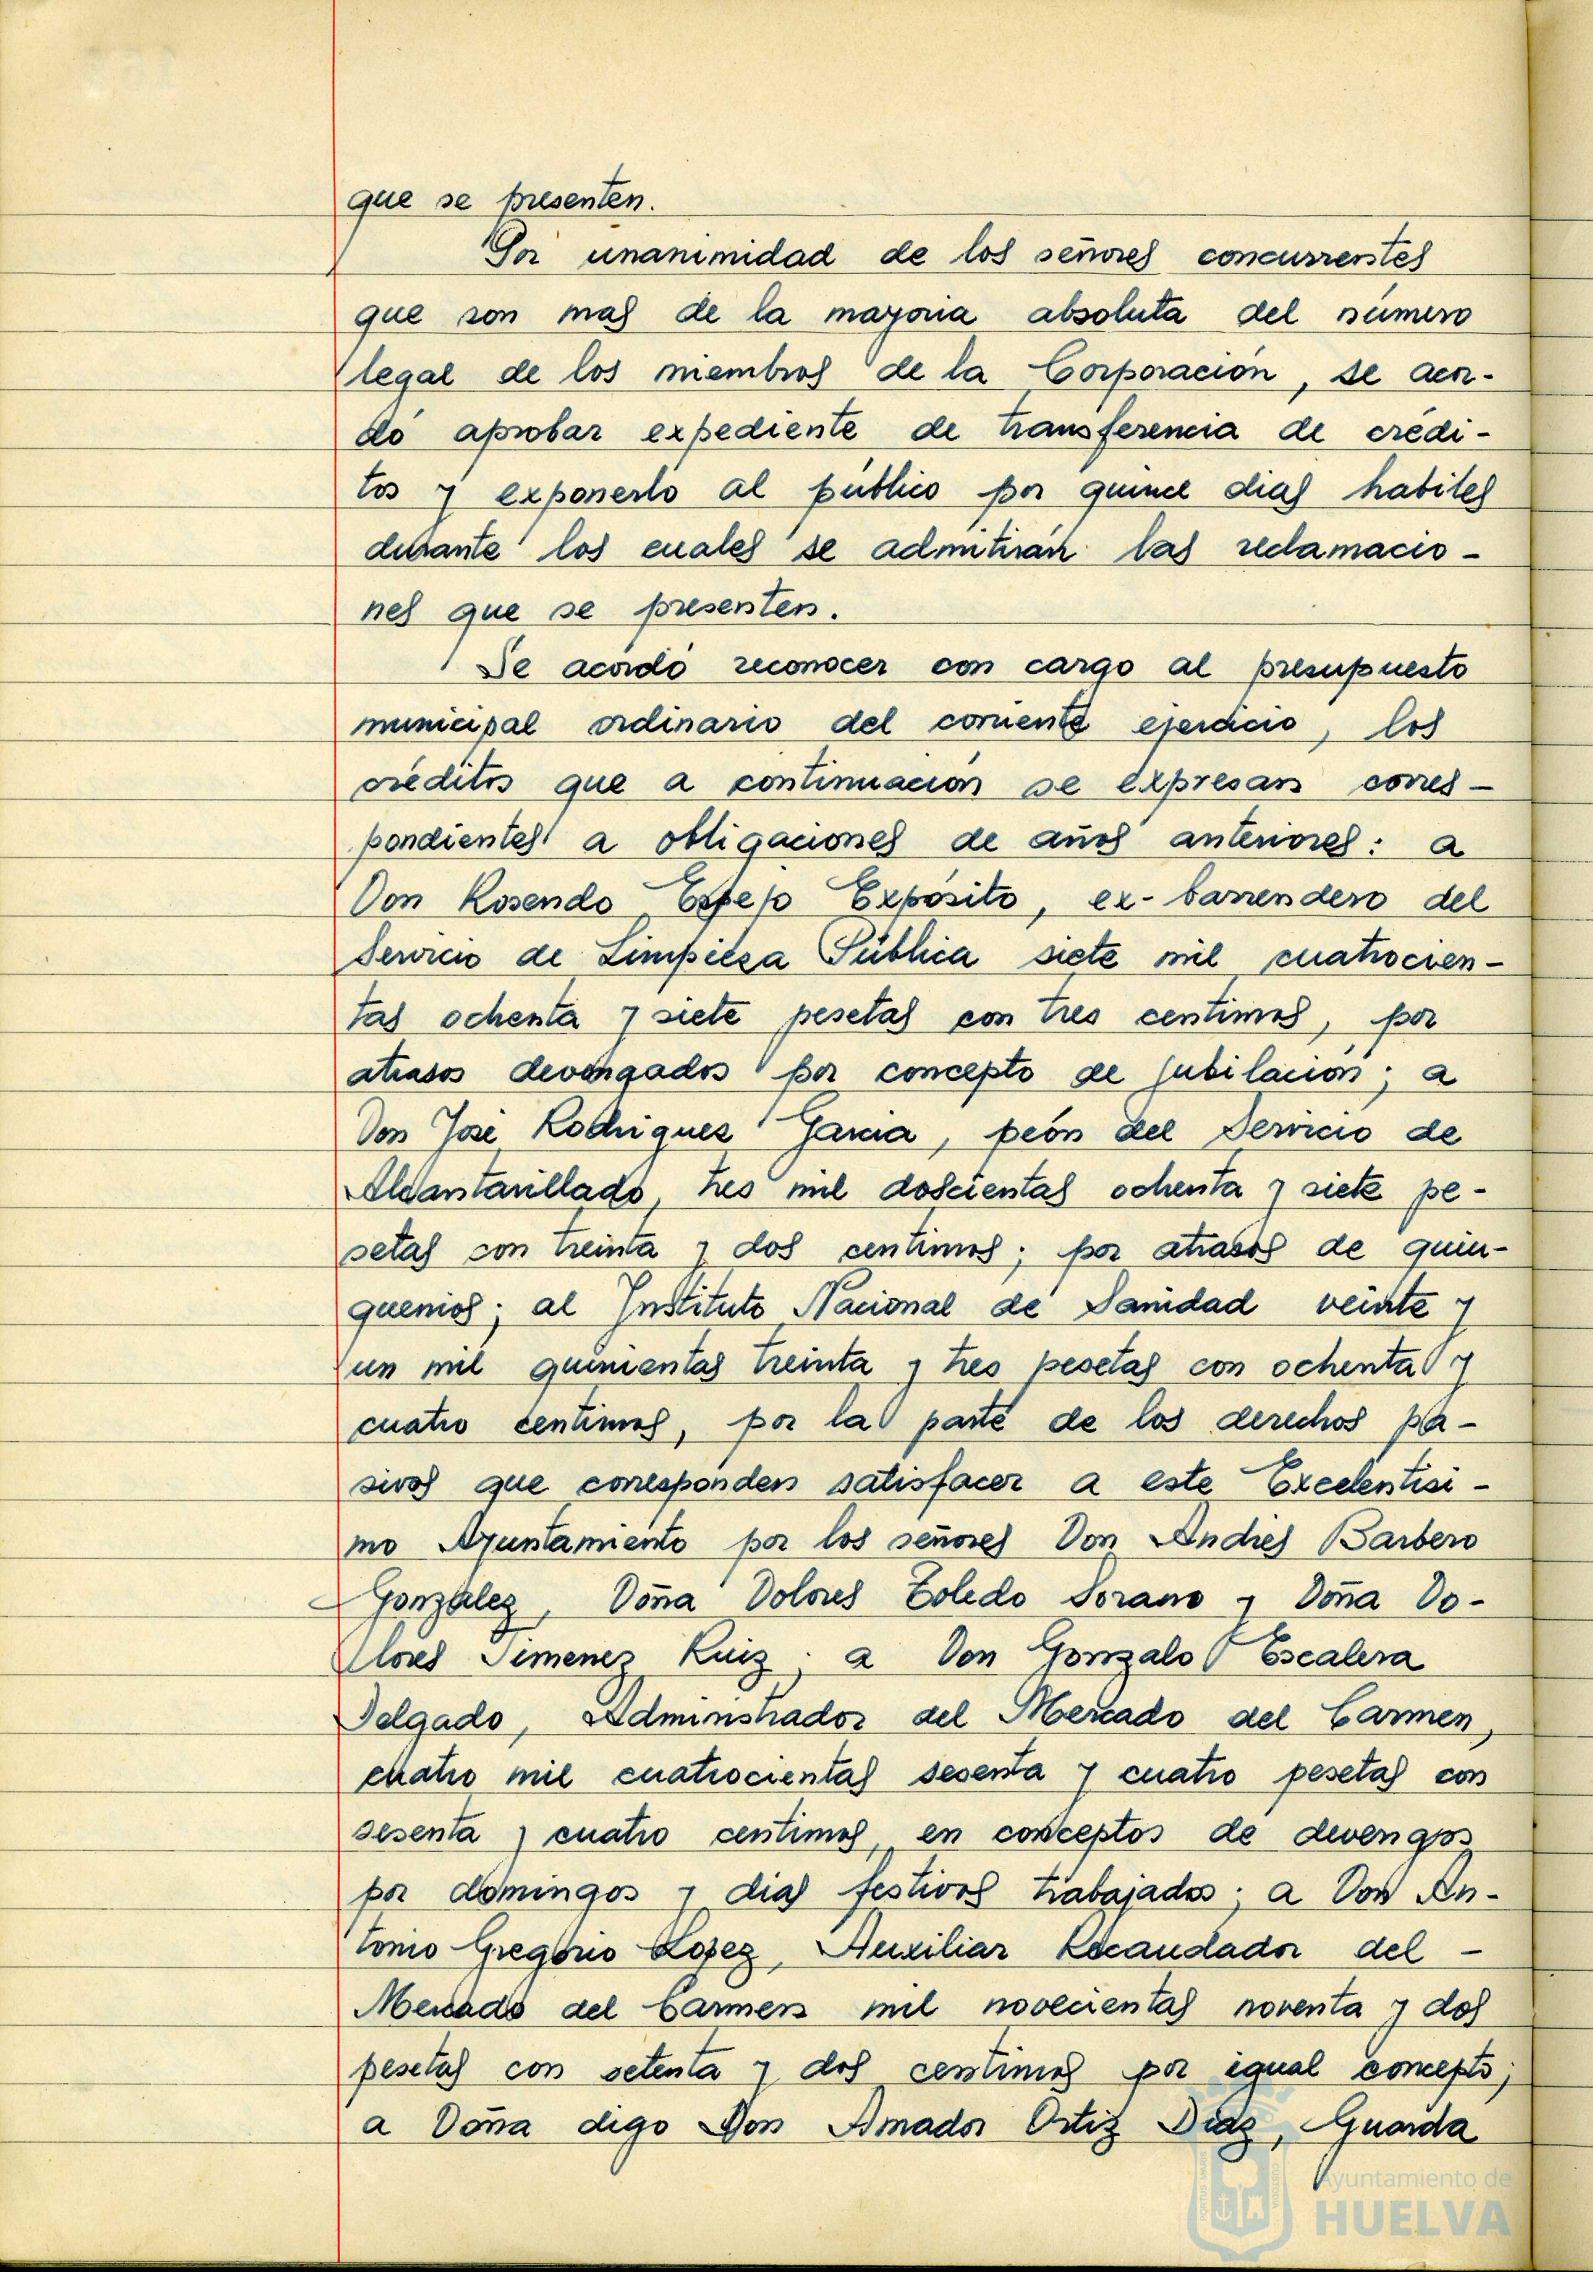 que se presenten.
Por unanimidad de los señores concurrentes
que son mas de la mayoria absoluta del número
legal de los miembros de la Corporación, se acor-
dó aprobar expediente de transferencia de crédi-
tos y exponerlo al público por quince dias habiles
durante los cuales se admitirán las reclamacio-
nes que se presenten.
Se acordó reconocer con cargo al presupuesto
municipal ordinario del corriente ejercicio, los
créditos que a continuación se expresan corres-
pondientes a obligaciones de años anteriores: a
Don Rosendo Espejo Expósito, ex-barrendero del
Servicio de Limpieza Pública siete mil cuatrocien-
tas ochenta y siete pesetas con tres centimos, por
atrasos devengados por concepto de jubilación; a
Don José Rodriguez Garcia, peón del Servicio de
Alcantarillado, tres mil doscientas ochenta y siete pe-
setas con treinta y dos centimos; por atrasos de quin-
quenios; al Instituto Nacional de Sanidad veinte y
un mil quinientas treinta y tres pesetas con ochenta y
cuatro centimos, por la parte de los derechos pa-
sivos que corresponden satisfacer a este Excelentisi-
mo Ayuntamiento por los señores Don Andres Barbero
González, Doña Dolores Toledo Sorano y Doña Do-
lores Jimenez Ruiz; a Don Gonzalo Escalera
Delgado, Administrador del Mercado del Carmen,
cuatro mil cuatrocientas sesenta y cuatro pesetas con
sesenta y cuatro centimos, en conceptos de devengos
por domingos y dias festivos trabajados; a Don An-
tonio Gregorio Lopez, Auxiliar Recaudador del -
Mercado del Carmen mil novecientas noventa y dos
pesetas con setenta y dos centimos por igual concepto;
a Doña digo Don Amador Ortiz Diaz, Guarda
Ayuntamiento de
HUELVA